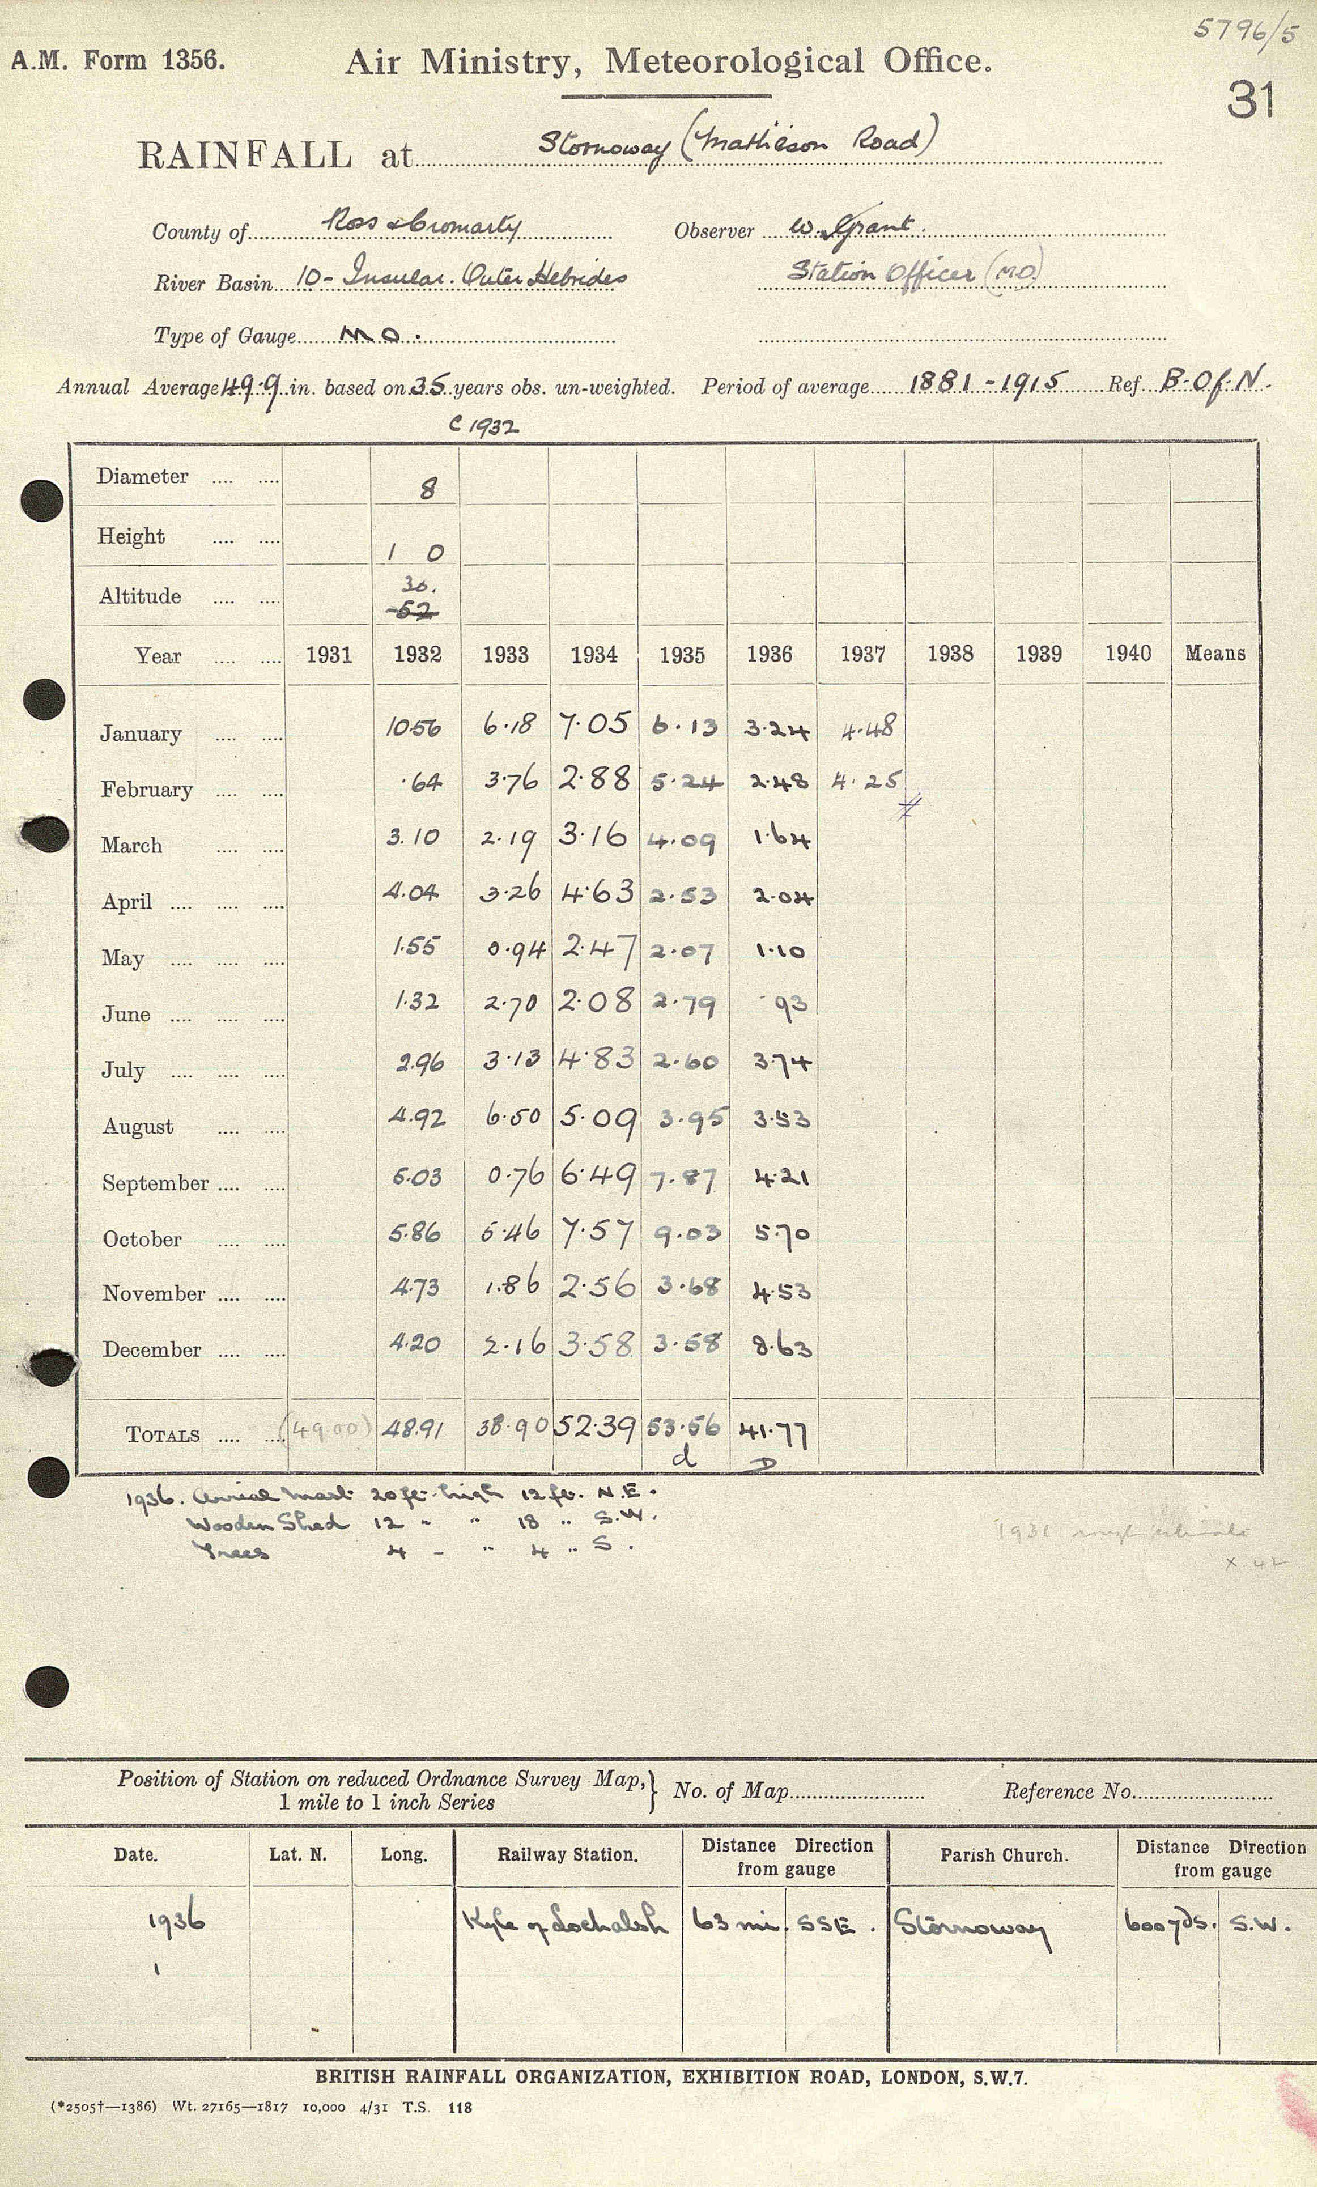 5796/5
A.M. Form 1356. Air Ministry, Meteorological Office.
31
RAINFALL at Stornoway (Mathieson Road)
County of Ross & Cromarty Observer W. Grant.
River Basin 10 - Insular. Outer Hebrides Station Officer (MO)
Type of Gauge M O.
Annual Average 49.9 in. based on 35 years obs. un-weighted. Period of average 1881-1915 Ref. B. Of. N.
C 1932
Diameter .... .... 8
Height .... .... 1 0
Altitude .... .... 30. 52
Year .... .... 1931 1932 1933 1934 1935 1936 1937 1938 1939 1940 Means
January .... .... 10.56 6.18 7.05 6.13 3.24 4.48
February .... .... .64 3.76 2.88 5.24 2.48 4.25
March .... .... 3.10 2.19 3.16 4.09 1.64
April .... .... .... 4.04 3.26 4.63 2.53 2.04
May .... .... .... 1.55 0.94 2.47 2.07 1.10
June .... .... .... 1.32 2.70 2.08 2.79 .93
July .... .... .... 2.96 3.13 4.83 2.60 3.74
August .... .... 4.92 6.50 5.09 3.95 3.53
September .... .... 5.03 0.76 6.49 7.87 4.21
October .... .... 5.86 5.46 7.57 9.03 5.70
November .... .... 4.73 1.86 2.56 3.68 4.53
December .... .... 4.20 2.16 3.58 3.58 8.63
TOTALS .... .... (49.00) 48.91 38.90 52.39 53.56 41.77
d D
1936. Aerial Mast 20 ft. high 12 ft. N.E.
Wooden Shed 12 " " 18 " S.W.
Trees 4 " " 4 " S.
1931 rough estimate
Position of Station on reduced Ordnance Survey Map,} No. of Map Reference No.
1 mile to 1 inch Series
Date. Lat. N. Long. Railway Station. Distance Direction from gauge Parish Church. Distance Direction from gauge
1936 Kyle of Lochalsh 63 mi. SSE. Stornoway 600 yds. S.W.
BRITISH RAINFALL ORGANIZATION, EXHIBITION ROAD, LONDON, S.W.7.
(*2505†—1386) Wt. 27165—1817 10,000 4/31 T.S. 118